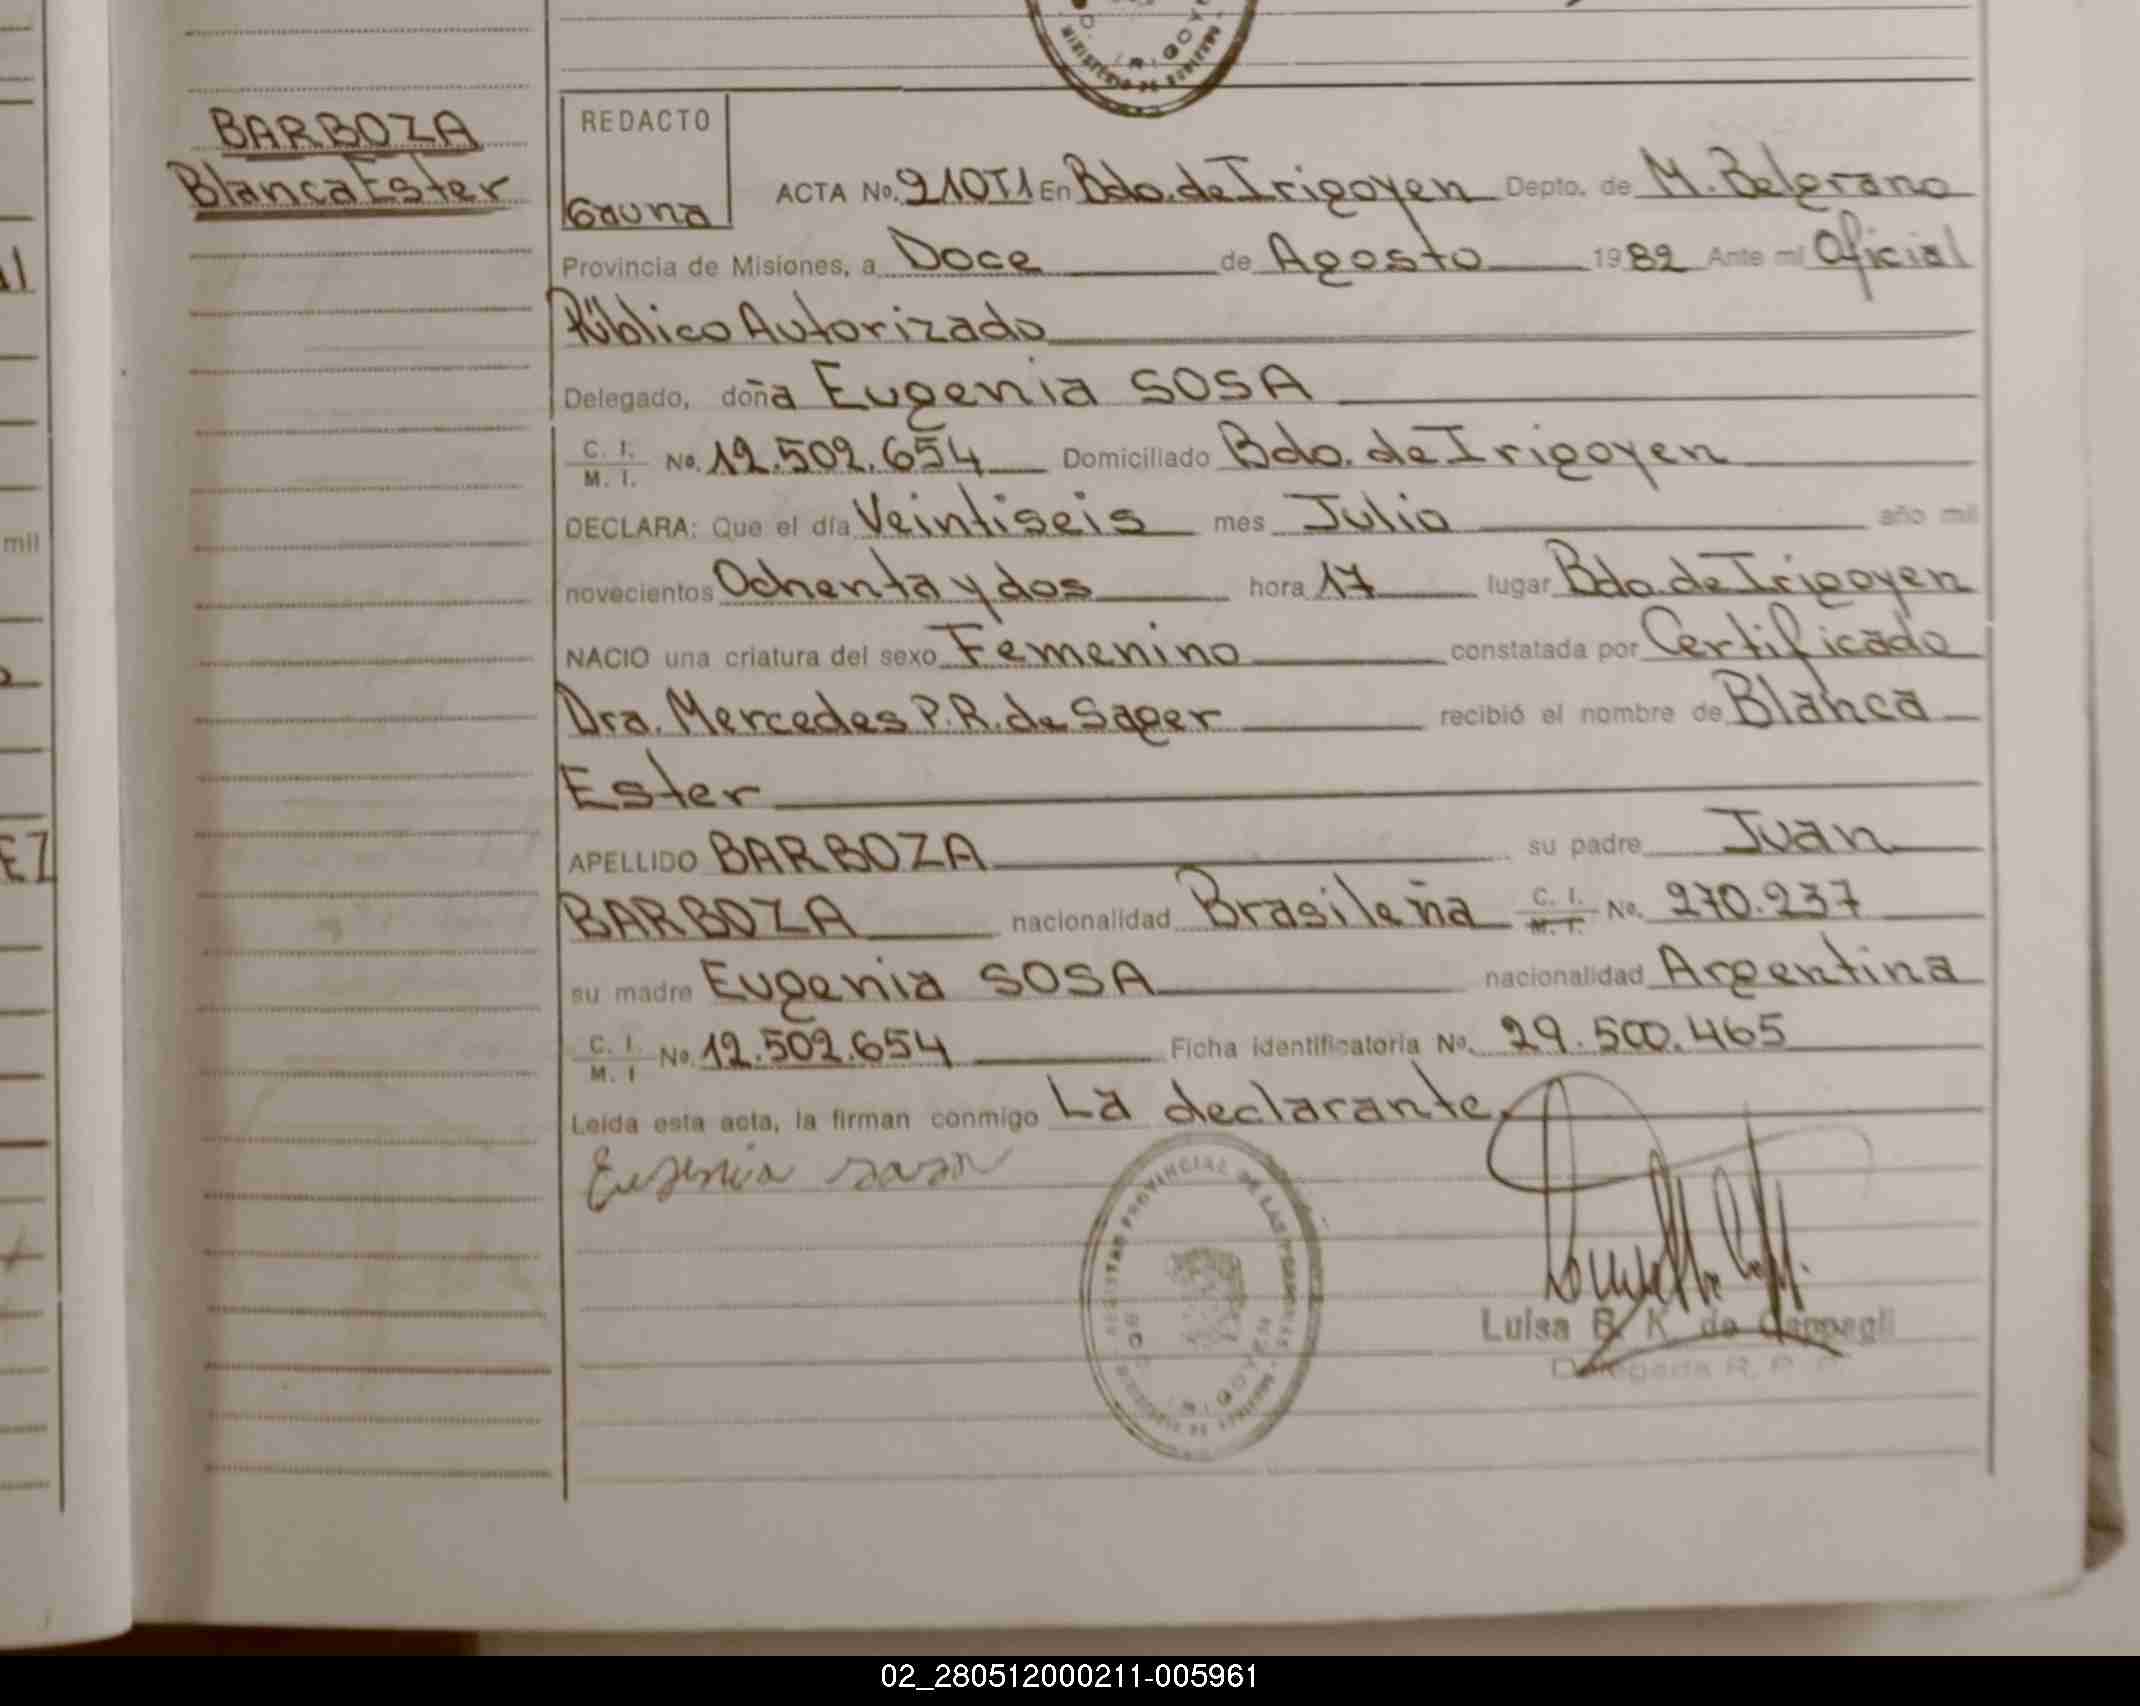 BARBOZA
Blanca Ester
REDACTO
Gauna
ACTA No. 210T1 En Bdo. de Irigoyen Depto. de M. Belgrano
Provincia de Misiones, a Doce de Agosto 1982 Ante mi Oficial
Público Autorizado
Delegado, doña Eugenia SOSA
C. I. M. I. No. 12.502.654 Domiciliado Bdo. de Irigoyen
DECLARA: Que el día Veintiseis mes Julio año mil
novecientos Ochenta y dos hora 17 lugar Bdo. de Irigoyen
NACIO una criatura del sexo Femenino constatada por Certificado
Dra. Mercedes P. R. de Sager recibió el nombre de Blanca
Ester
APELLIDO BARBOZA su padre Juan
BARBOZA nacionalidad Brasileña C. I. M. I. No. 270.237
su madre Eugenia SOSA nacionalidad Argentina
C. I. M. I No. 12.502.654 Ficha identificatoria No. 29.500.465
Leída esta acta, la firman conmigo La declarante.
Eugenia sosa
REGISTRO PROVINCIAL DE LAS PERSONAS
Luisa B. K. de
Delegada R. P.
mil
EZ
02_280512000211-005961